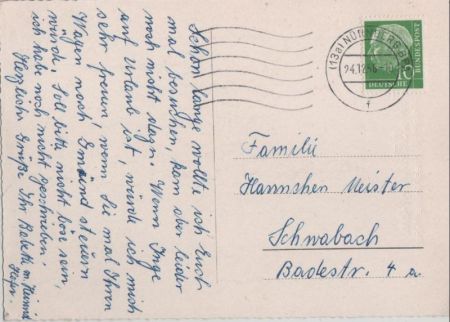 Schon lange wollte ich Euch
mal besuchen, kam aber leider
noch nicht dazu. Wenn Inge
auf Urlaub ist, würde ich mich
sehr freuen, wenn Sie mal Ihren
Wagen nach Gmünd steuern
würde. Soll bitte nicht böse sein,
ich habe noch nicht geschrieben.
Herzliche Grüße Ihr Babette m. Heimi
(13a) NÜRNBERG
24.12.56
f
10
DEUTSCHE BUNDESPOST
Familie
Hannschen Meister
Schwabach
Badestr. 4 a.